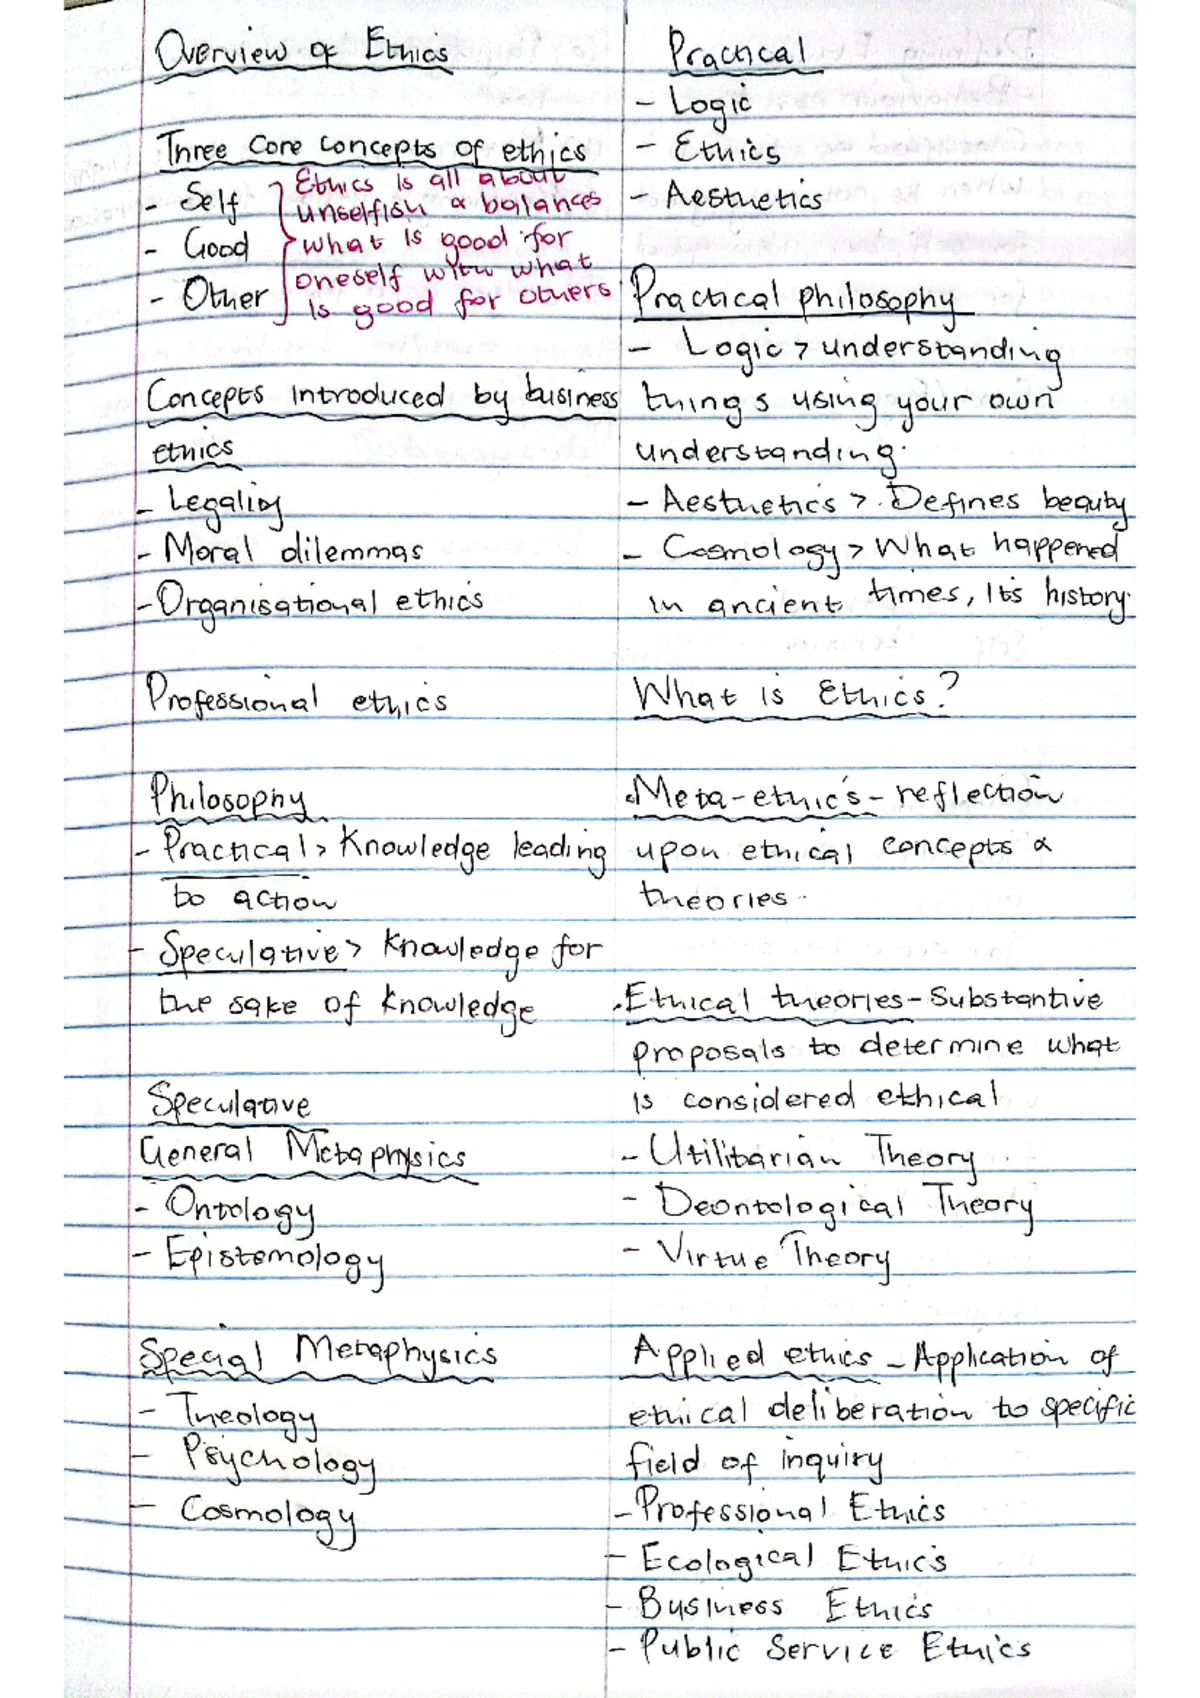 Overview of Ethics
Three core concepts of ethics
- Self
- Good
- Other
Ethics is all about
unselfish & balances
what is good for
oneself with what
is good for others
Concepts introduced by business
ethics
- Legality
- Moral dilemmas
- Organisational ethics
Professional ethics
Philosophy
- Practical > Knowledge leading
to action
- Speculative > Knowledge for
the sake of knowledge
Speculative
General Metaphysics
- Ontology
- Epistemology
Special Metaphysics
- Theology
- Psychology
- Cosmology
Practical
- Logic
- Ethics
- Aesthetics
Practical philosophy
- Logic > understanding
things using your own
understanding.
- Aesthetics > Defines beauty
- Cosmology > What happened
in ancient times, its history.
What is Ethics?
• Meta-ethics - reflection
upon ethical concepts &
theories.
• Ethical theories - Substantive
proposals to determine what
is considered ethical
- Utilitarian Theory
- Deontological Theory
- Virtue Theory
Applied ethics - Application of
ethical deliberation to specific
field of inquiry
- Professional Ethics
- Ecological Ethics
- Business Ethics
- Public Service Ethics